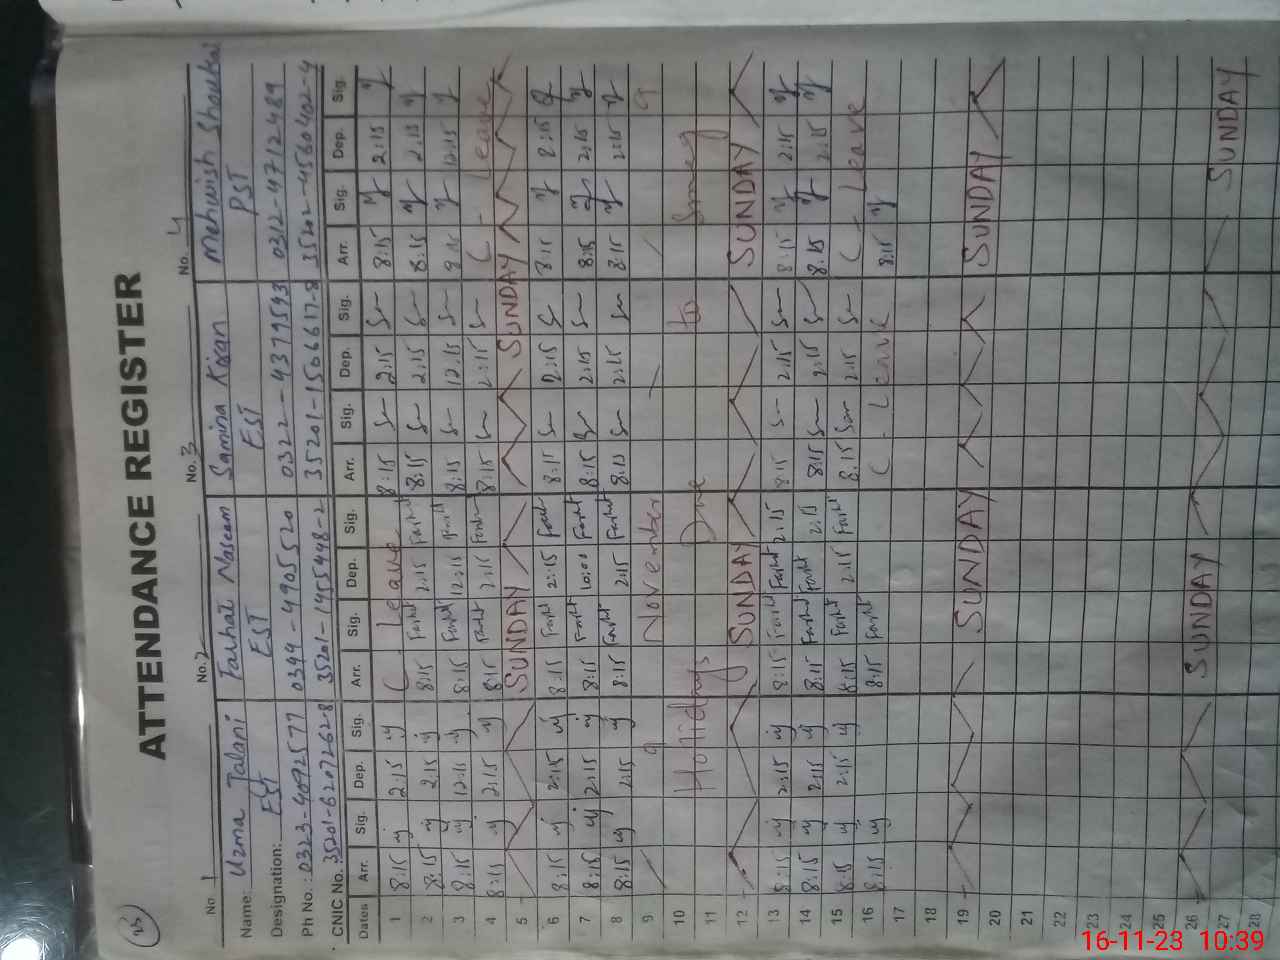 ATTENDANCE REGISTER
No 1 No. 2 No. 3 No. 4
Name: Uzma Jalani Farhat Naseem Samina Kiran Mehwish Shoukat
Designation: EST EST EST PST
Ph No.: 0323-4092577 0344-4905520 0322-4379593 0312-4712489
CNIC No. 35201-6207262-8 35201-1455498-2 35201-1566617-8 35202-4560402-4
Dates Arr. Sig. Dep. Sig. Arr. Sig. Dep. Sig. Arr. Sig. Dep. Sig. Arr. Sig. Dep. Sig.
1 8:15 2:15 C. Leave 8:15 2:15 8:15 2:15
2 8:15 2:15 8:15 Farhat 2:15 Farhat 8:15 2:15 8:15 2:15
3 8:15 12:15 8:15 Farhat 12:15 Farhat 8:15 12:15 8:15 12:15
4 8:15 2:15 8:15 Farhat 2:15 Farhat 8:15 2:15 C- Leave
5 SUNDAY SUNDAY
6 8:15 2:15 8:15 Farhat 2:15 Farhat 8:15 2:15 8:15 2:15
7 8:15 2:15 8:15 Farhat 10:00 Farhat 8:15 2:15 8:15 2:15
8 8:15 2:15 8:15 Farhat 2:15 Farhat 8:15 2:15 8:15 2:15
9 9 November 9
10 Holidays Due to Smog
11
12 SUNDAY SUNDAY
13 8:15 2:15 8:15 Farhat Farhat 2:15 8:15 2:15 8:15 2:15
14 8:15 2:15 8:15 Farhat Farhat 2:15 8:15 2:15 8:15 2:15
15 8:15 2:15 8:15 Farhat 2:15 Farhat 8:15 2:15 C- Leave
16 8:15 8:15 Farhat C. Leave 8:15
17
18
19 SUNDAY SUNDAY
20
21
22
23
24
25
26 SUNDAY SUNDAY
27
28
16-11-23 10:39